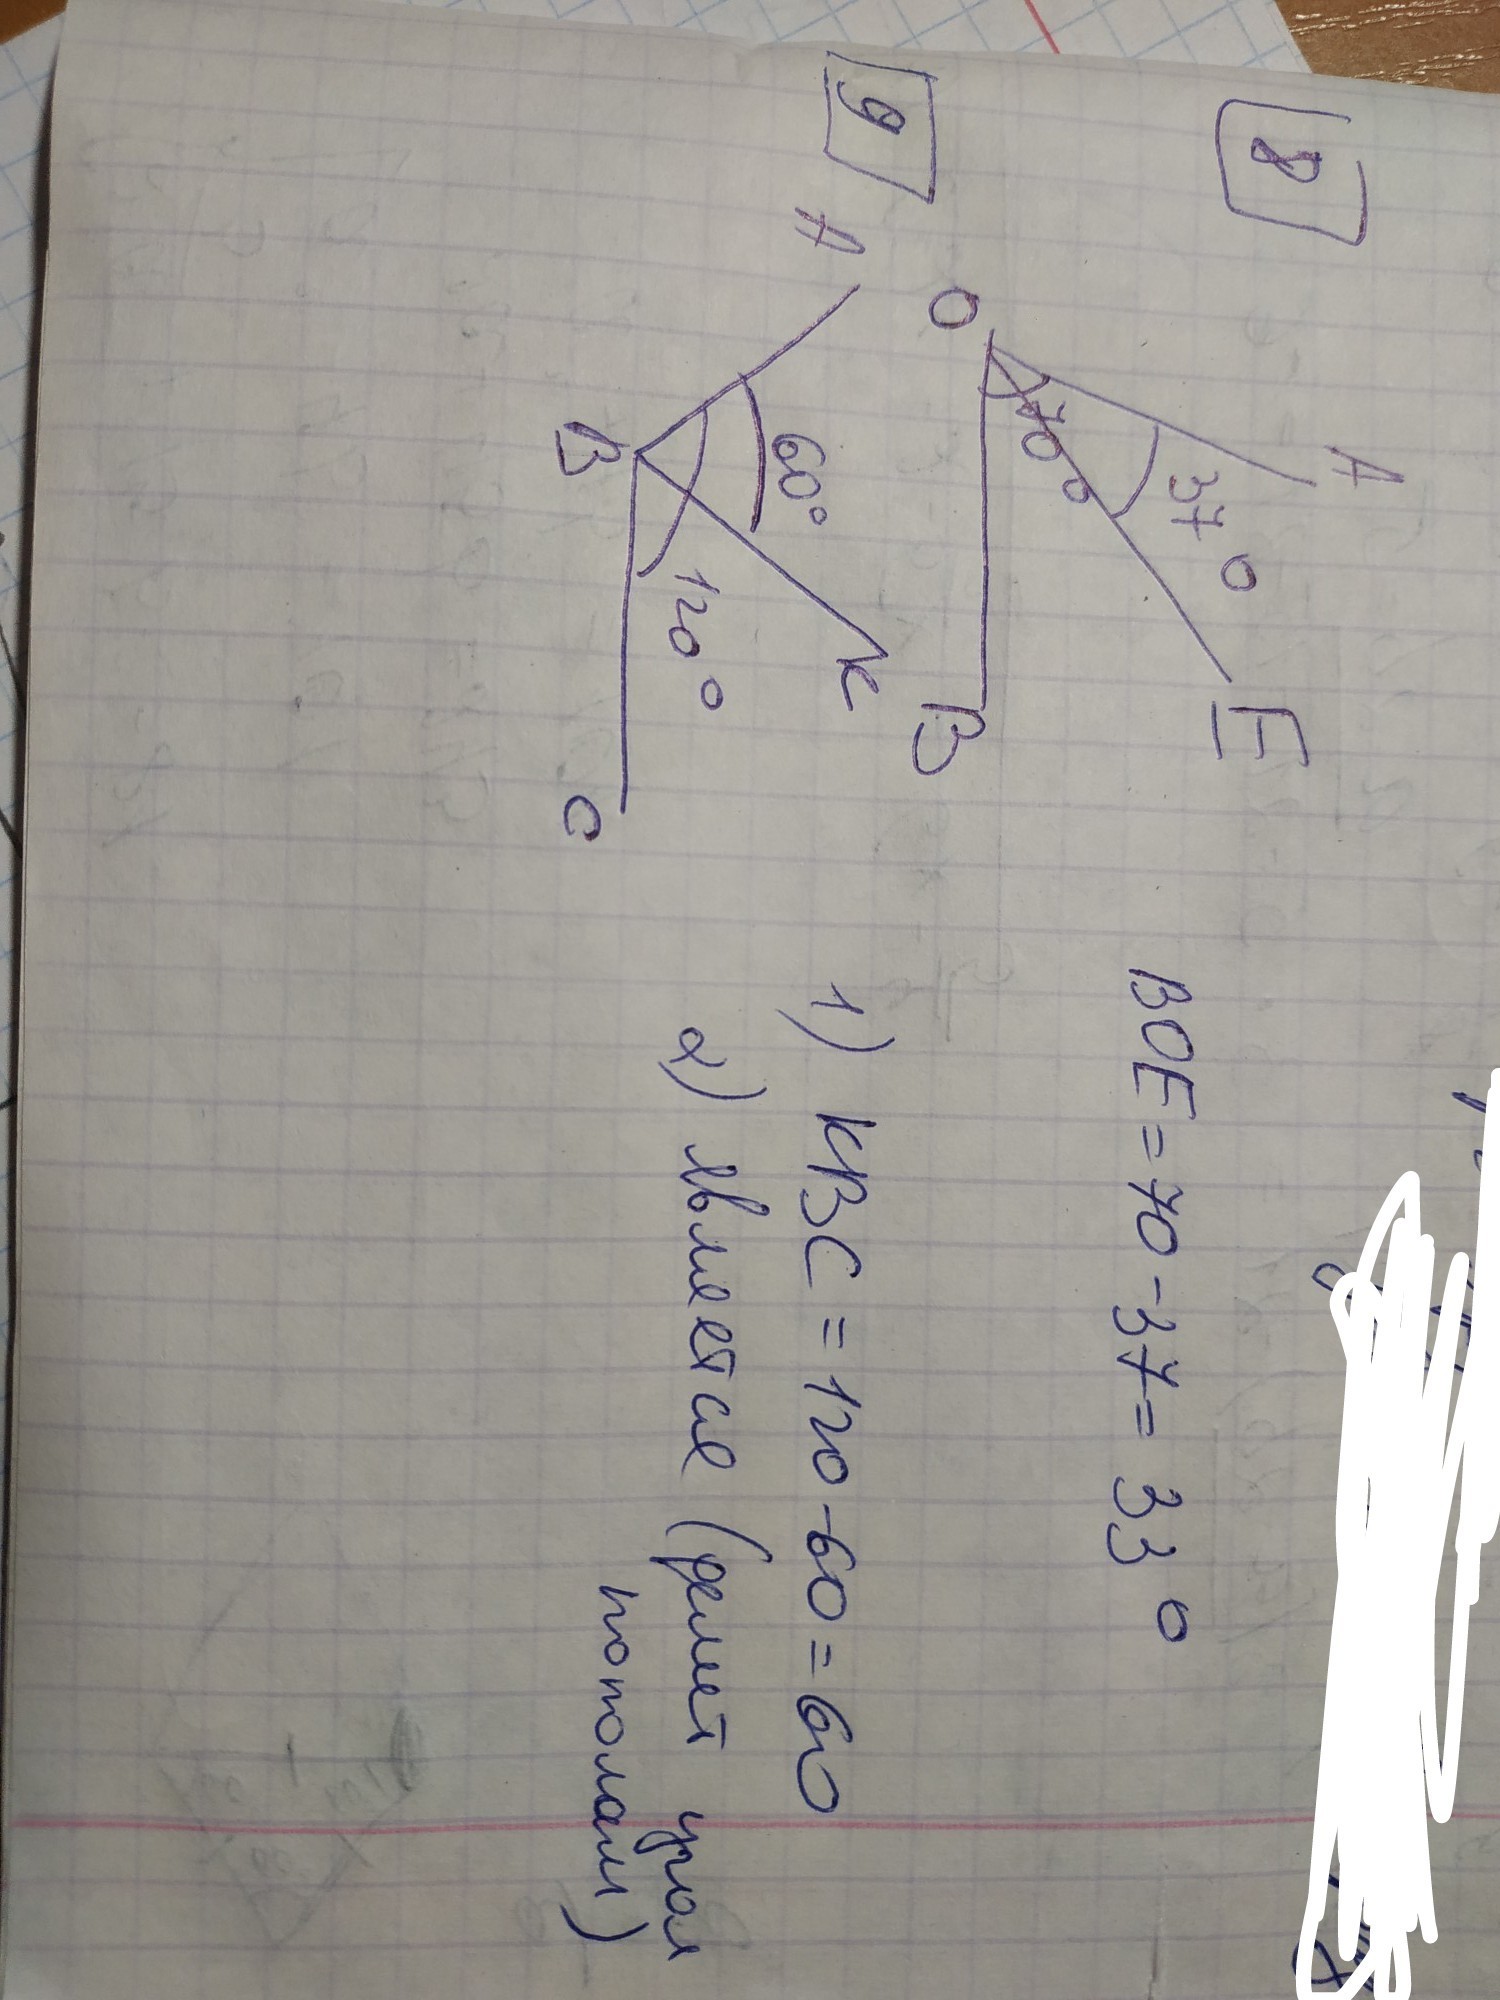 8
A
37°
E
70°
O
B
BOE = 70 - 37 = 33°
9
A
60°
K
120°
B
C
1) KBC = 120 - 60 = 60
2) является (делит угол
пополам)